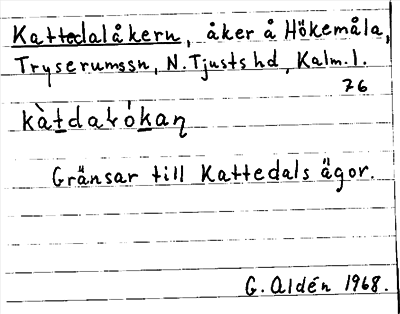 Kattedalåkern, åker å Hökemåla,
Tryserumssn, N. Tjusts hd, Kalm. l.
76
Gränsar till Kattedals ägor.
G. Aldén 1968.